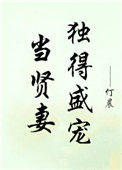 独得盛宠
当贤妻
——何晨